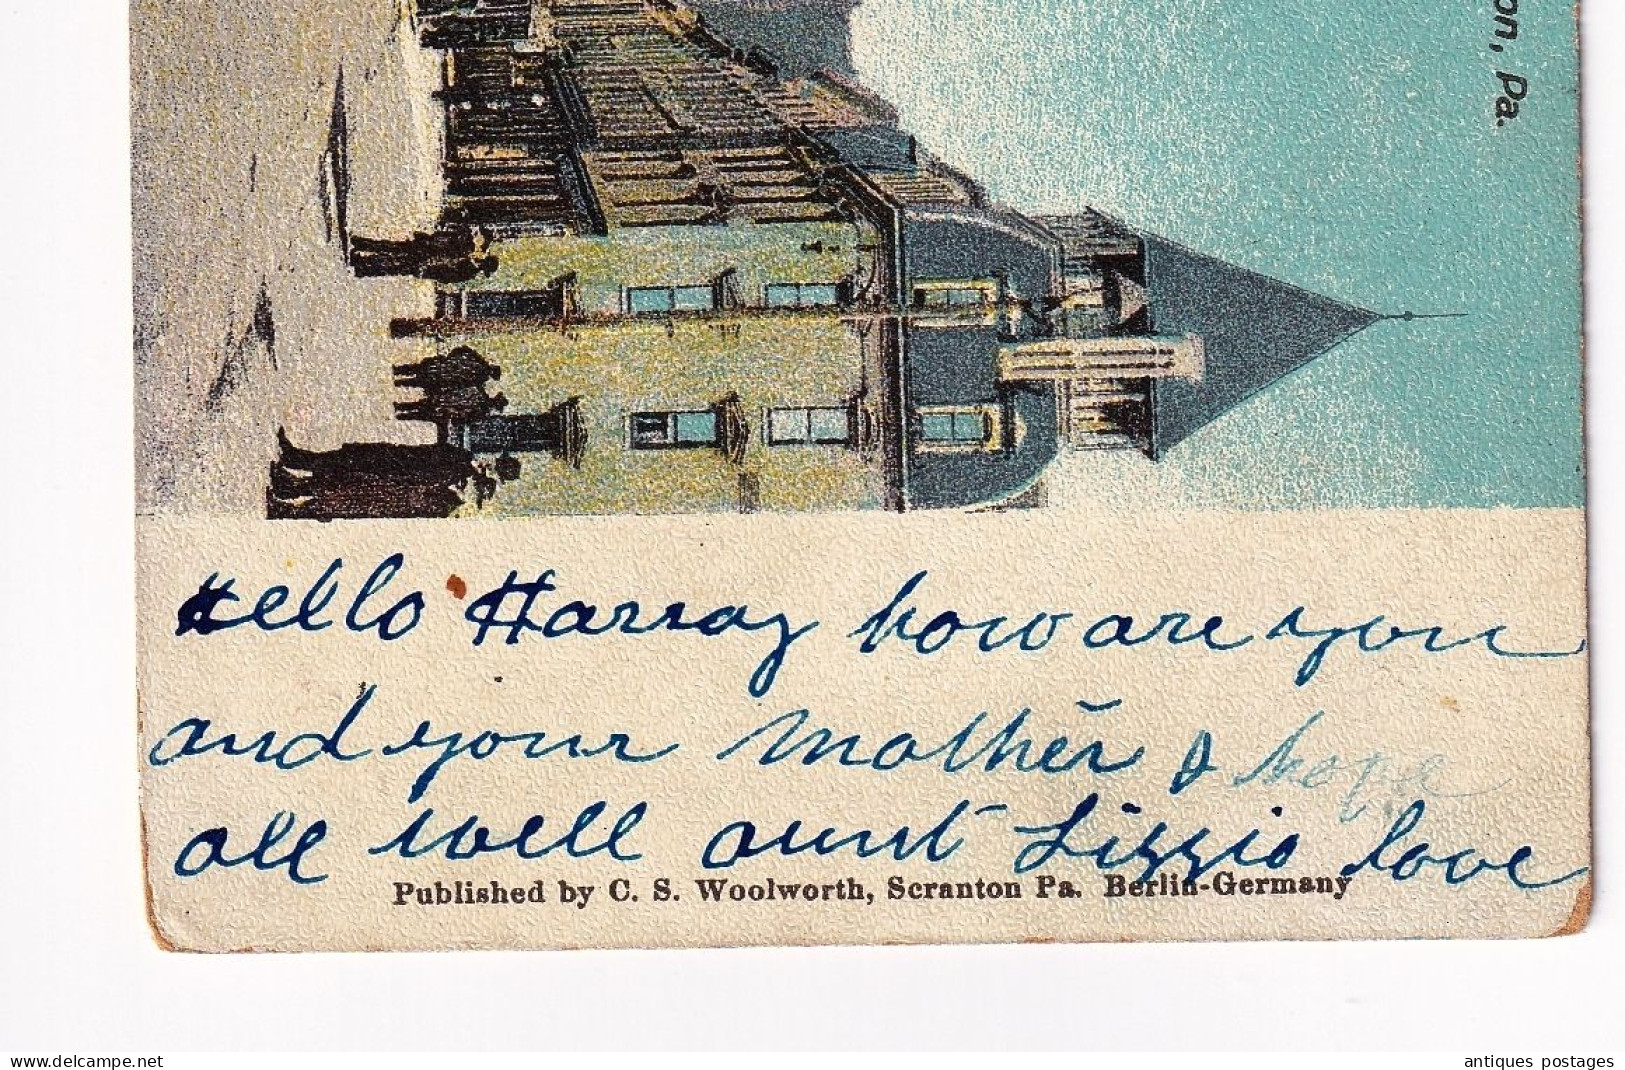 on, Pa.
Hello Harray how are you
and your Mother & hope
all well aunt Lizzie love
Published by C. S. Woolworth, Scranton Pa. Berlin-Germany
www.delcampe.net
antiques postages